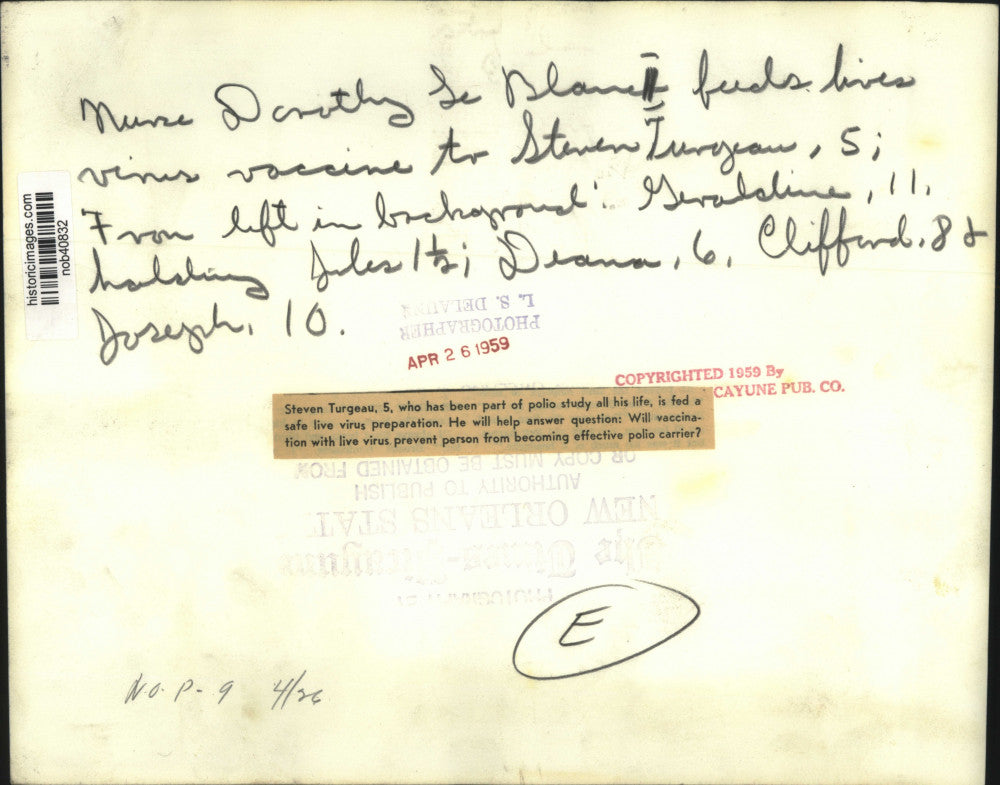 Nurse Dorothy Le Blanc feeds lives
virus vaccine to Steven Turgeau, 5;
From left in background: Geraldine, 11,
holding Jules 1½; Deana, 6, Clifford, 8 &
Joseph, 10.
historicimages.com
nob40832
PHOTOGRAPHER
L. S. DELAUNE
APR 26 1959
COPYRIGHTED 1959 By
CAYUNE PUB. CO.
Steven Turgeau, 5, who has been part of polio study all his life, is fed a
safe live virus preparation. He will help answer question: Will vaccina-
tion with live virus prevent person from becoming effective polio carrier?
PHOTOGRAPH BY
The Times-Picayune
NEW ORLEANS STAT
AUTHORITY TO PUBLISH
OR COPY MUST BE OBTAINED FROM
E
N.O. P- 9 4/26